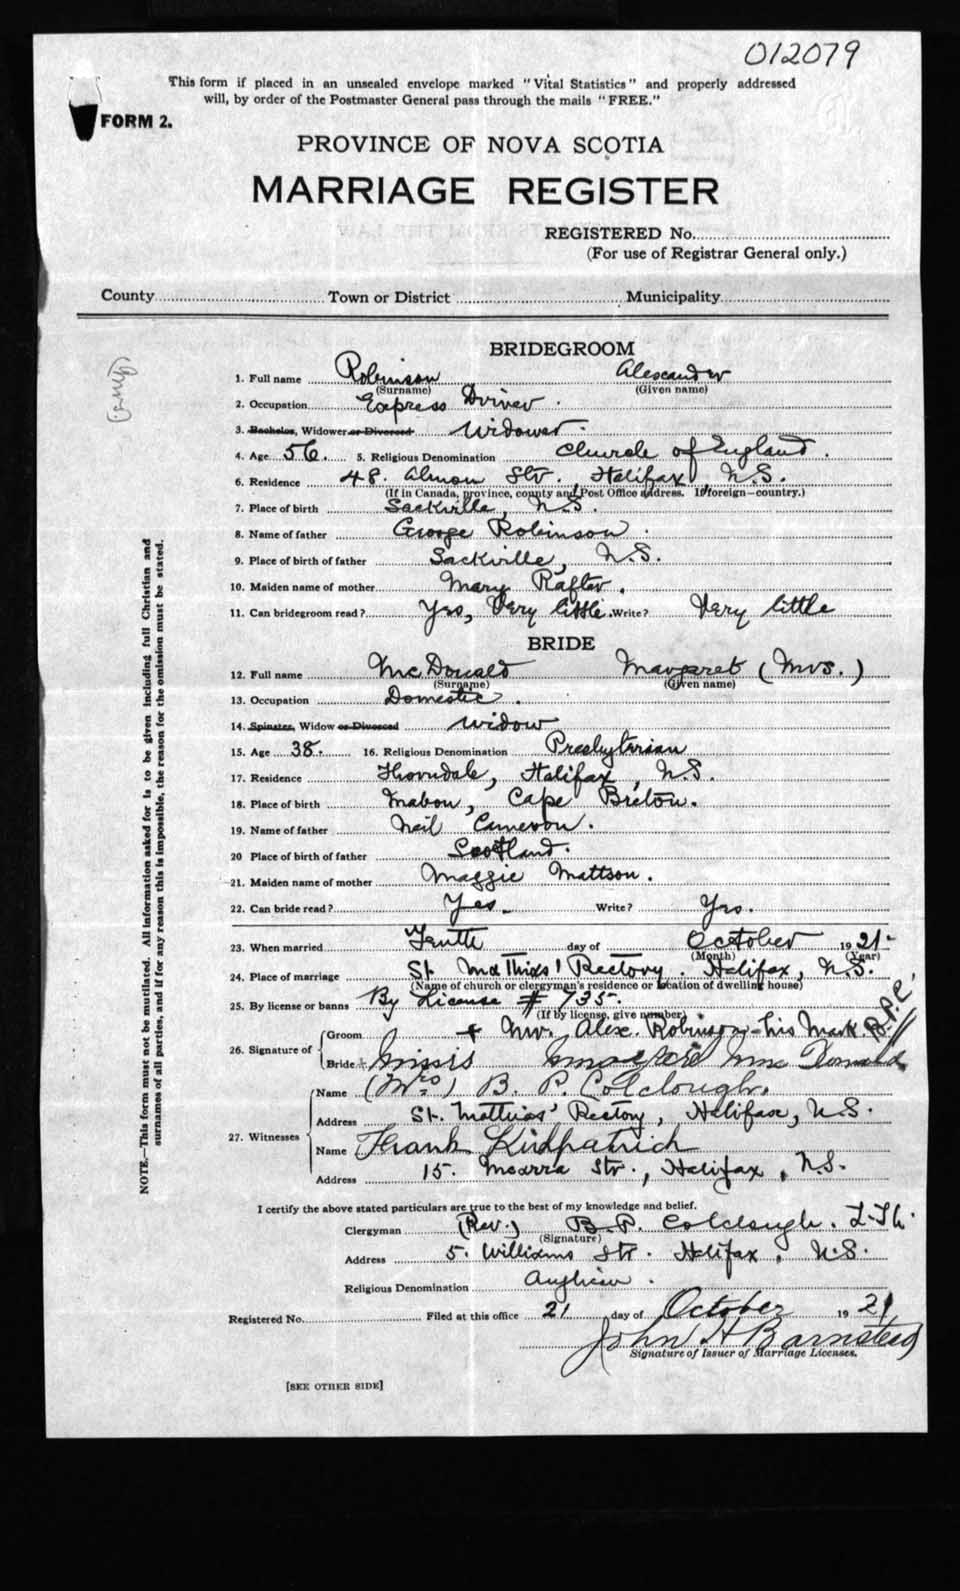 012079
This form if placed in an unsealed envelope marked "Vital Statistics" and properly addressed
will, by order of the Postmaster General pass through the mails "FREE."
FORM 2.
PROVINCE OF NOVA SCOTIA
MARRIAGE REGISTER
REGISTERED No.
(For use of Registrar General only.)
County Town or District Municipality
BRIDEGROOM
1. Full name Robinson Alexander
(Surname) (Given name)
2. Occupation Express Driver.
3. Bachelor, Widower or Divorced Widower.
4. Age 56. 5. Religious Denomination Church of England.
6. Residence 48. Almon Str., Halifax, N.S.
(If in Canada, province, county and Post Office address. If foreign—country.)
7. Place of birth Sackville, N.S.
8. Name of father George Robinson.
9. Place of birth of father Sackville, N.S.
10. Maiden name of mother Mary Rafter.
11. Can bridegroom read? Yes, Very little. Write? Very little
BRIDE
12. Full name McDonald Margaret (Mrs.)
(Surname) (Given name)
13. Occupation Domestic.
14. Spinster, Widow or Divorced Widow
15. Age 38. 16. Religious Denomination Presbyterian
17. Residence Thorndale, Halifax, N.S.
18. Place of birth Mabou, Cape Breton.
19. Name of father Neil Cameron.
20 Place of birth of father Scotland.
21. Maiden name of mother Maggie Mattson.
22. Can bride read? Yes. Write? Yes.
23. When married Tenth day of October 1921.
(Month) (Year)
24. Place of marriage St. Matthias' Rectory. Halifax, N.S.
(Name of church or clergyman's residence or location of dwelling house)
25. By license or banns By License # 735.
(If by license, give number)
26. Signature of
Groom + Mr. Alex. Robinson—his Mark. B.P.C.
Bride Missis McDonald
27. Witnesses
Name (Mrs) B. P. Colclough.
Address St. Matthias' Rectory, Halifax, N.S.
Name Frank Kirkpatrick
Address 15. Str., Halifax, N.S.
I certify the above stated particulars are true to the best of my knowledge and belief.
Clergyman (Rev.) B. P. Colclough. L.Th.
(Signature)
Address 5. Williams Str. Halifax, N.S.
Religious Denomination Anglican.
Registered No. Filed at this office 21 day of October 1921
John H Barnstead
Signature of Issuer of Marriage Licenses.
[SEE OTHER SIDE]
NOTE.—This form must not be mutilated. All information asked for is to be given including full Christian and
surnames of all parties, and if for any reason this is impossible, the reason for the omission must be stated.